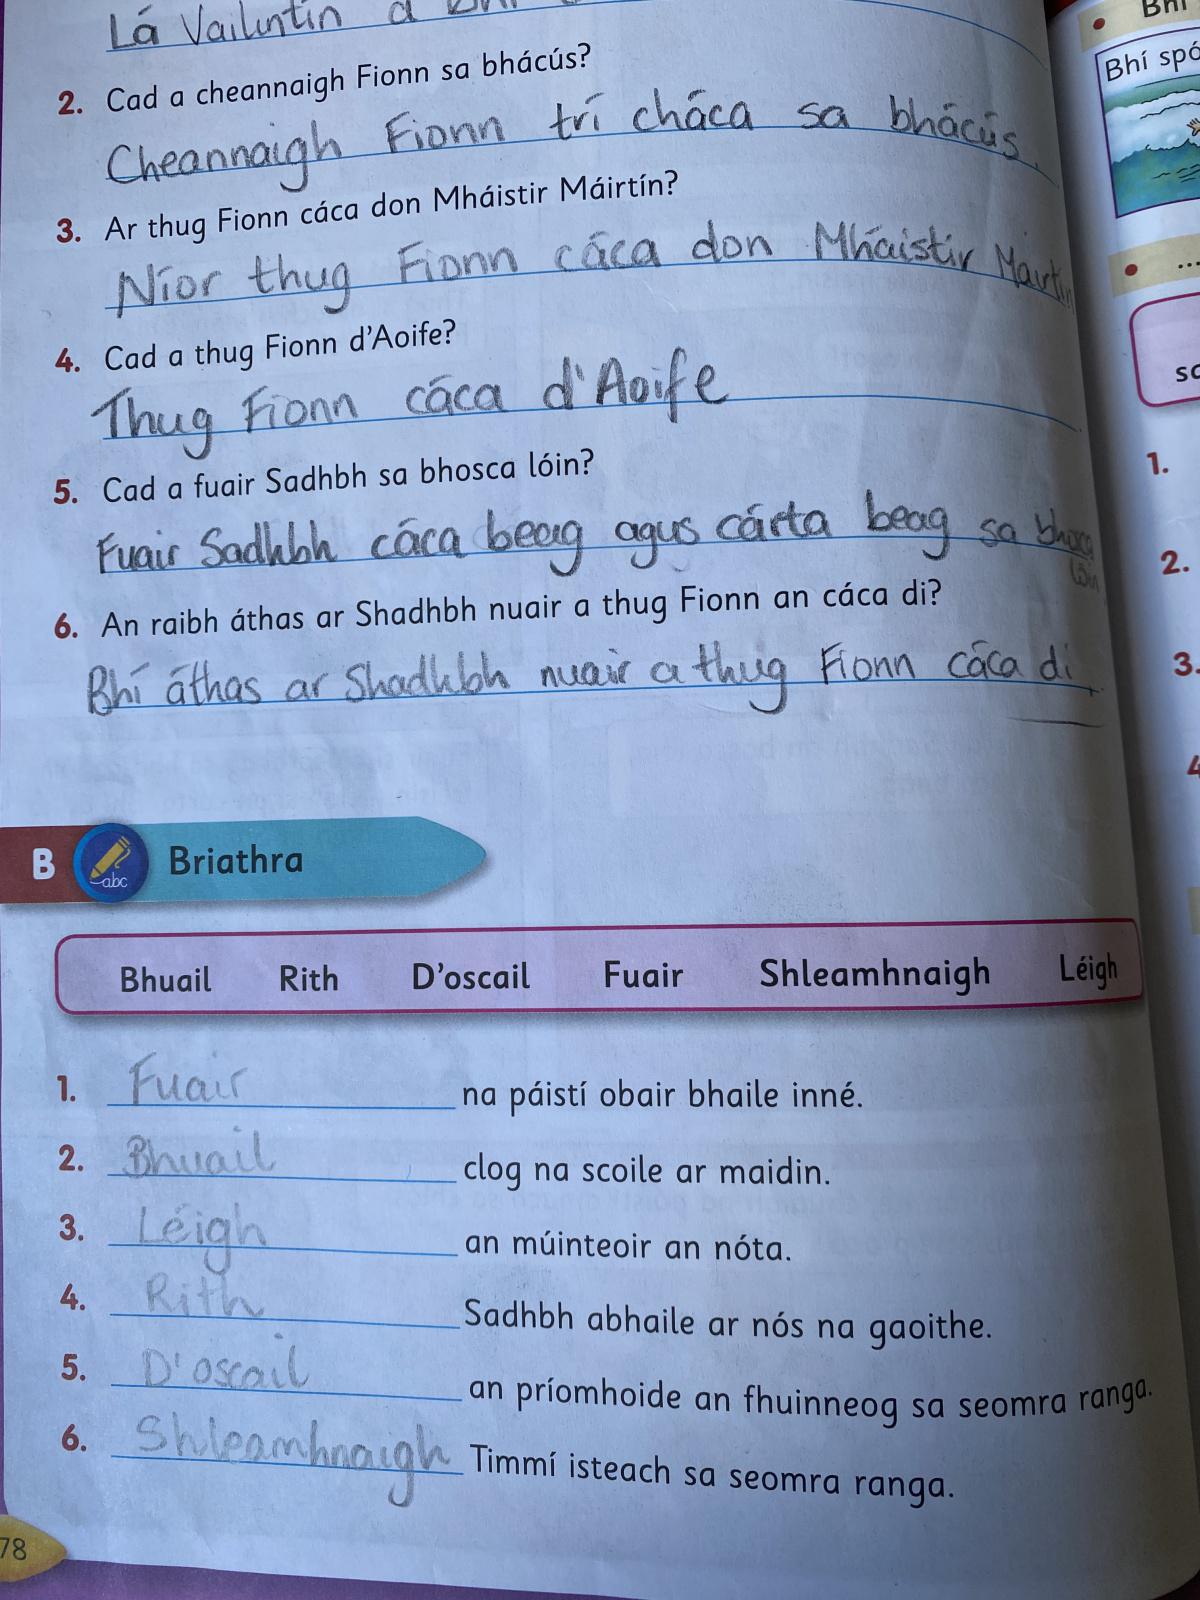 Lá Vailintín a Bhí
2. Cad a cheannaigh Fionn sa bhácús?
Cheannaigh Fionn trí cháca sa bhácús.
3. Ar thug Fionn cáca don Mháistir Máirtín?
Níor thug Fionn cáca don Mháistir Máirtín
4. Cad a thug Fionn d'Aoife?
Thug Fionn cáca d'Aoife
5. Cad a fuair Sadhbh sa bhosca lóin?
Fuair Sadhbh cáca beag agus cárta beag sa bhosca
lóin
6. An raibh áthas ar Shadhbh nuair a thug Fionn an cáca di?
Bhí áthas ar Shadhbh nuair a thug Fionn cáca di
B abc Briathra
Bhuail Rith D'oscail Fuair Shleamhnaigh Léigh
1. Fuair na páistí obair bhaile inné.
2. Bhuail clog na scoile ar maidin.
3. Léigh an múinteoir an nóta.
4. Rith Sadhbh abhaile ar nós na gaoithe.
5. D'oscail an príomhoide an fhuinneog sa seomra ranga.
6. Shleamhnaigh Timmí isteach sa seomra ranga.
78
Bhí
Bhí spó
...
1.
2.
3.
4